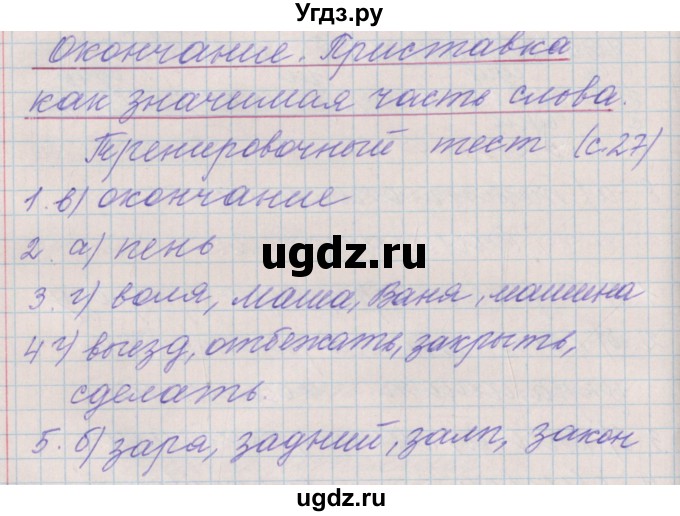 Угдз.ру
Окончание. Приставка
как значимая часть слова.
Тренировочный тест (с.27)
1. в) окончание
2. а) пень
ugdz.ru
3. г) воля, Маша, Ваня, машина
4 г) выезд, отбежать, закрыть,
сделать.
5. б) заря, задний, залп, закон
ugdz.ru